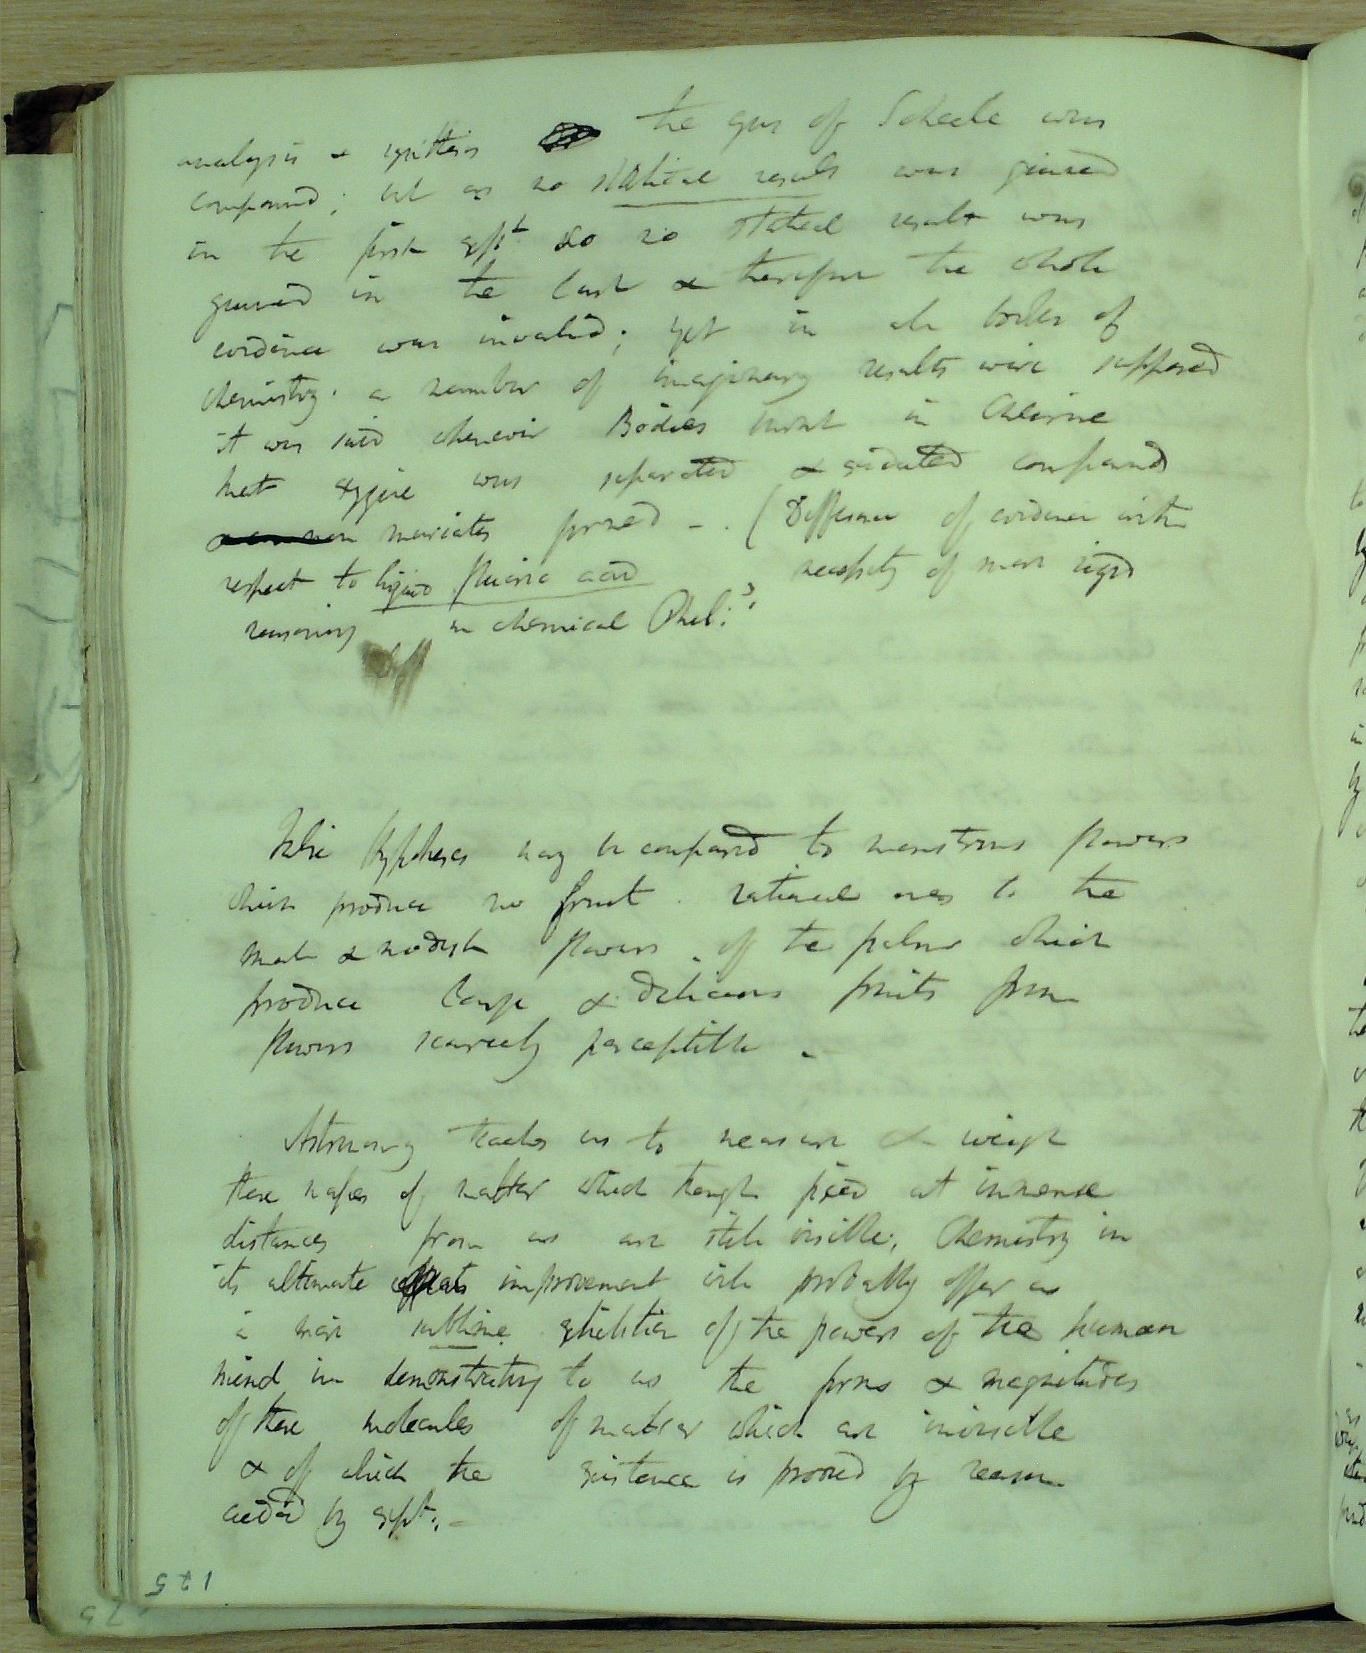 analysis & synthesis the gas of Scheele was
compound; but as no statical result was gained
in the first expt. so no statical result was
gained in the last & therefore the whole
evidence was invalid; yet in all books of
chemistry. a number of imaginary results were supposed
it was said whenever Bodies burnt in Chlorine
that oxygene was separated & oxidated compounds
muriates formed - . ( Difference of evidence with
respect to liquid fluoric acid necessity of more rigid
reasoning in chemical Phil:
False Hypotheses may be compared to monstrous flowers
which produce no fruit. rational ones to the
male & modest flowers of the palms which
produce large & delicious fruits from
flowers scarcely perceptible .
Astronomy teaches us to measure & weigh
those masses of matter which though fixed at immense
distances from us are still visible; Chemistry in
its ultimate improvement will probably offer us
a more sublime exhibition of the powers of the human
mind in demonstrating to us the forms & magnitudes
of those molecules of matter which are invisible
& of which the existence is proved by reason
aided by expt: -
125